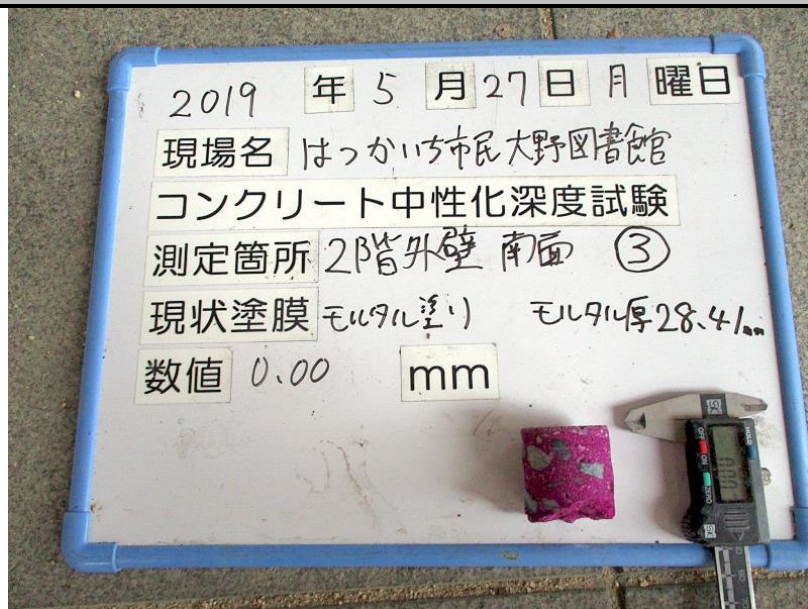 2019 年 5 月 27 日 月 曜日
現場名 はつかいち市民大野図書館
コンクリート中性化深度試験
測定箇所 2階外壁 南面 ③
現状塗膜 モルタル塗り モルタル厚28.41mm
数値 0.00 mm
OFF
ON
ZERO
HOLD
0.00